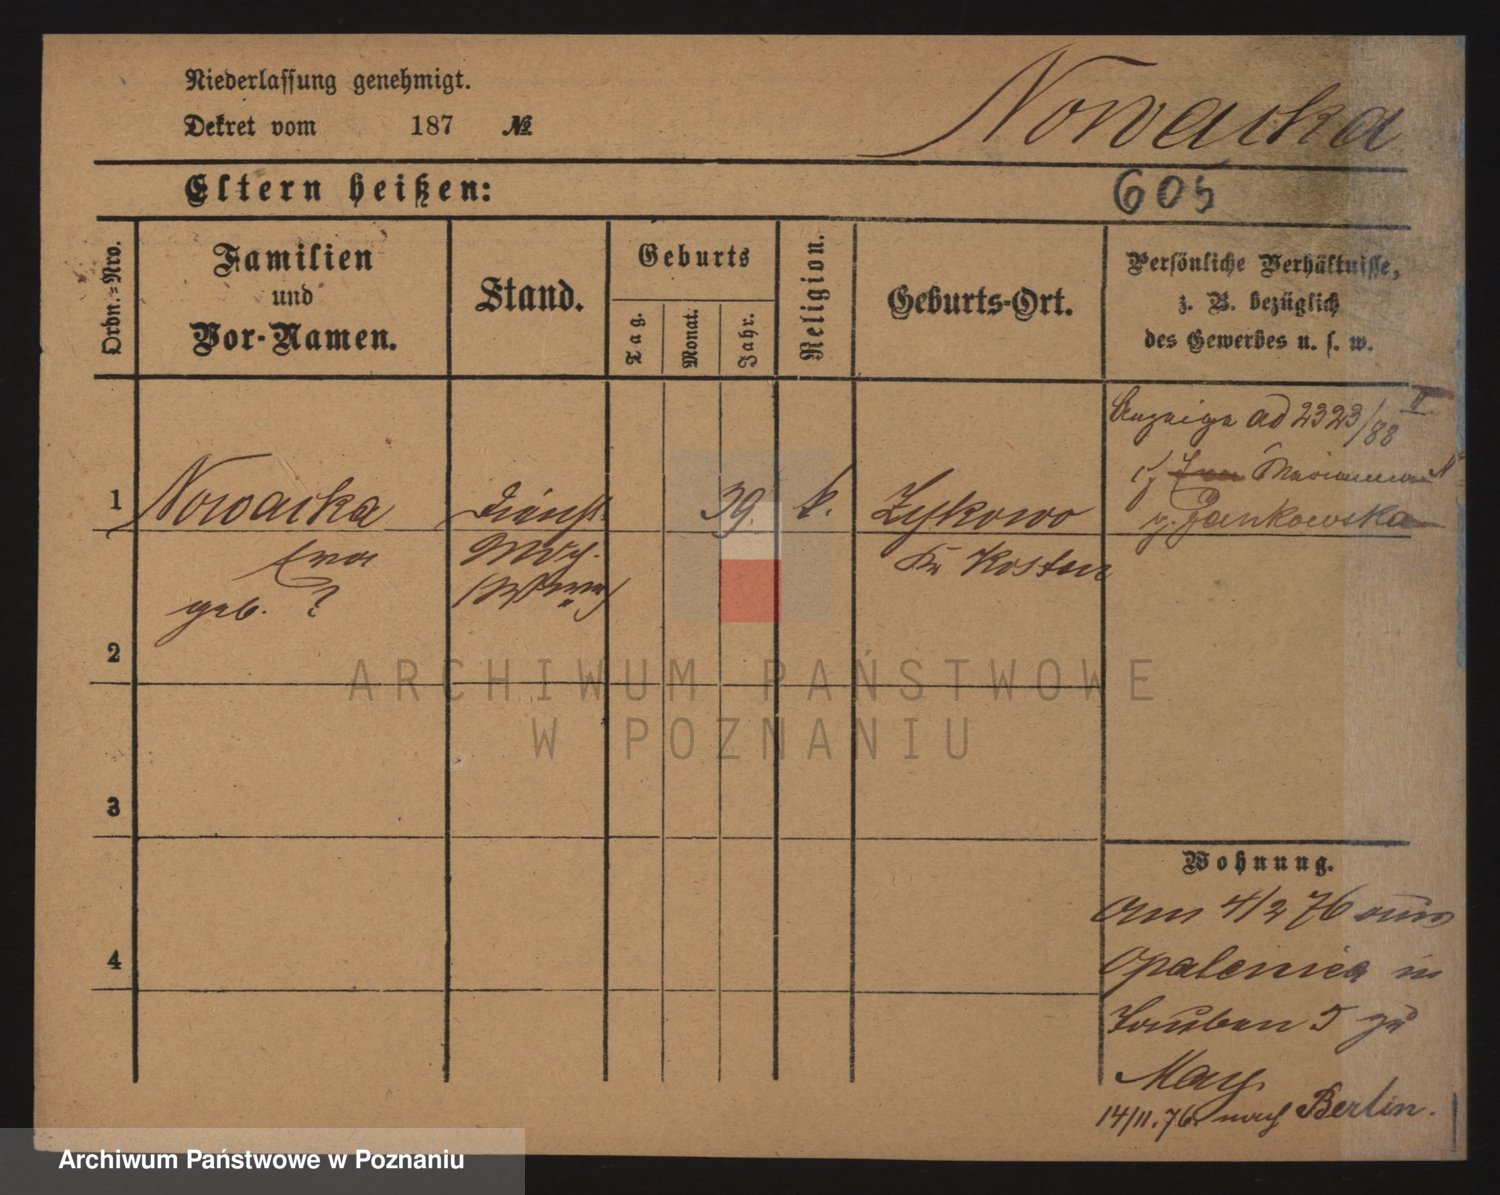 Niederlassung genehmigt.
Dekret vom 187 №
Nowacka
Eltern heißen:
605
Ordn.-Nro.
Familien
und
Vor-Namen.
Stand.
Geburts
Tag.
Monat.
Jahr.
Religion.
Geburts-Ort.
Persönliche Verhältnisse,
z. B. bezüglich
des Gewerbes u. s. w.
Anzeige ad 2323/88 II
Marianna N
g. Jankowska
1
Nowacka
Eva
geb. ?
Dienst
Mdch.
39.
k.
Zykowo
Kr Kosten
2
3
4
Wohnung.
am 4/2 76 aus
Opalenica in
Tauben 5 zu
May.
14/11.76. nach Berlin.
ARCHIWUM PAŃSTWOWE
W POZNANIU
Archiwum Państwowe w Poznaniu